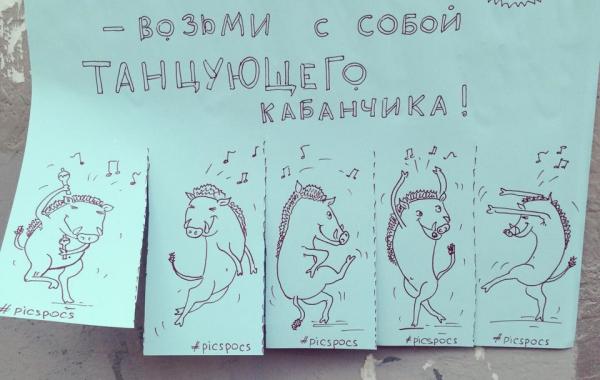 – ВОЗЬМИ С СОБОЙ
ТАНЦУЮЩЕГО
КАБАНЧИКА!
#picspocs
#picspocs
#picspocs
#picspocs
#picspocs